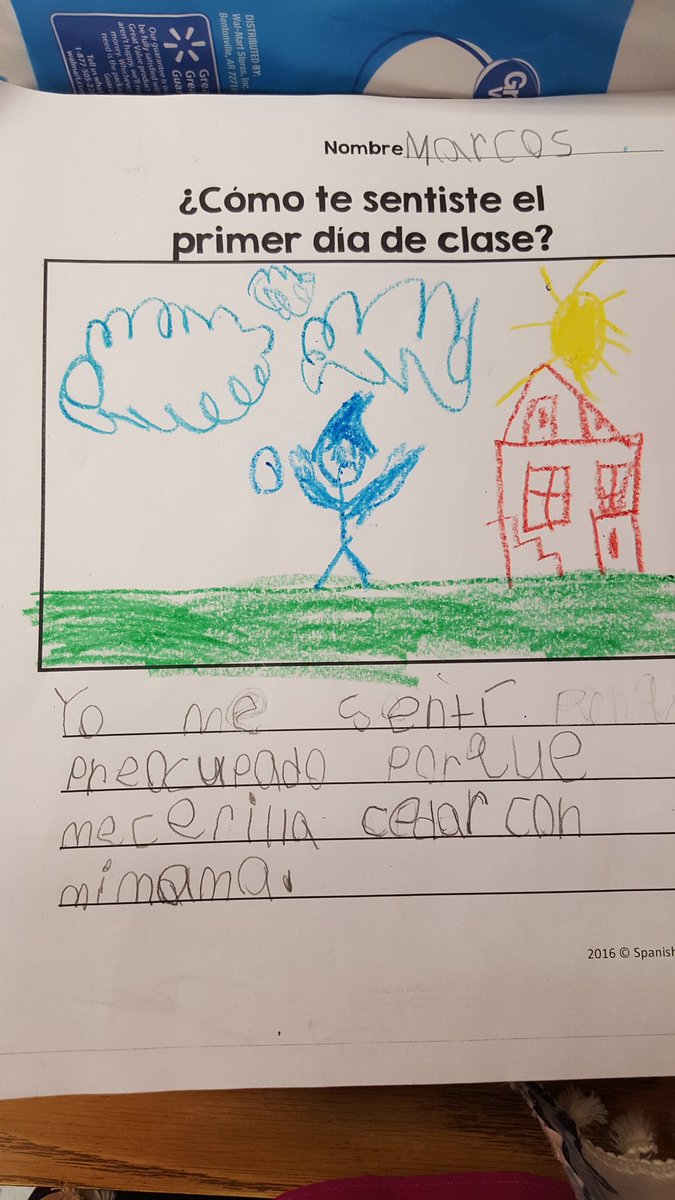 DISTRIBUTED BY:
Wal-Mart Stores, Inc.
Bentonville, AR
Nombre Marcos
¿Cómo te sentiste el
primer día de clase?
Yo me sentí
preocupado porque
mecerilla cedar con
mi mama.
2016 © Spanish